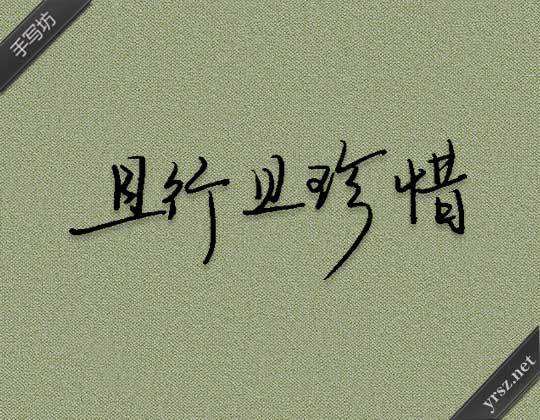 手写坊
且行且珍惜
yrsz.net